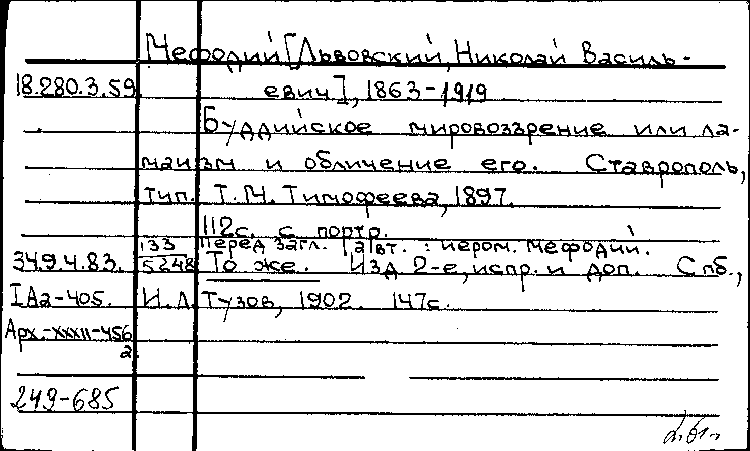 Мефодий [Львовский, Николай Василь-
18.280.3.59 евич], 1863-1919
Буддийское мировоззрение или ла-
маизм и обличение его. Ставрополь,
тип. Т.М. Тимофеева, 1897.
112с. с портр.
133 Перед загл. авт. : иером. Мефодий.
349.4.83. 5248 То же. Изд 2-е, испр. и доп. Спб.,
IAa-405. И.Л. Тузов, 1902. 147с.
Арх.-XXXII-456
2
249-685